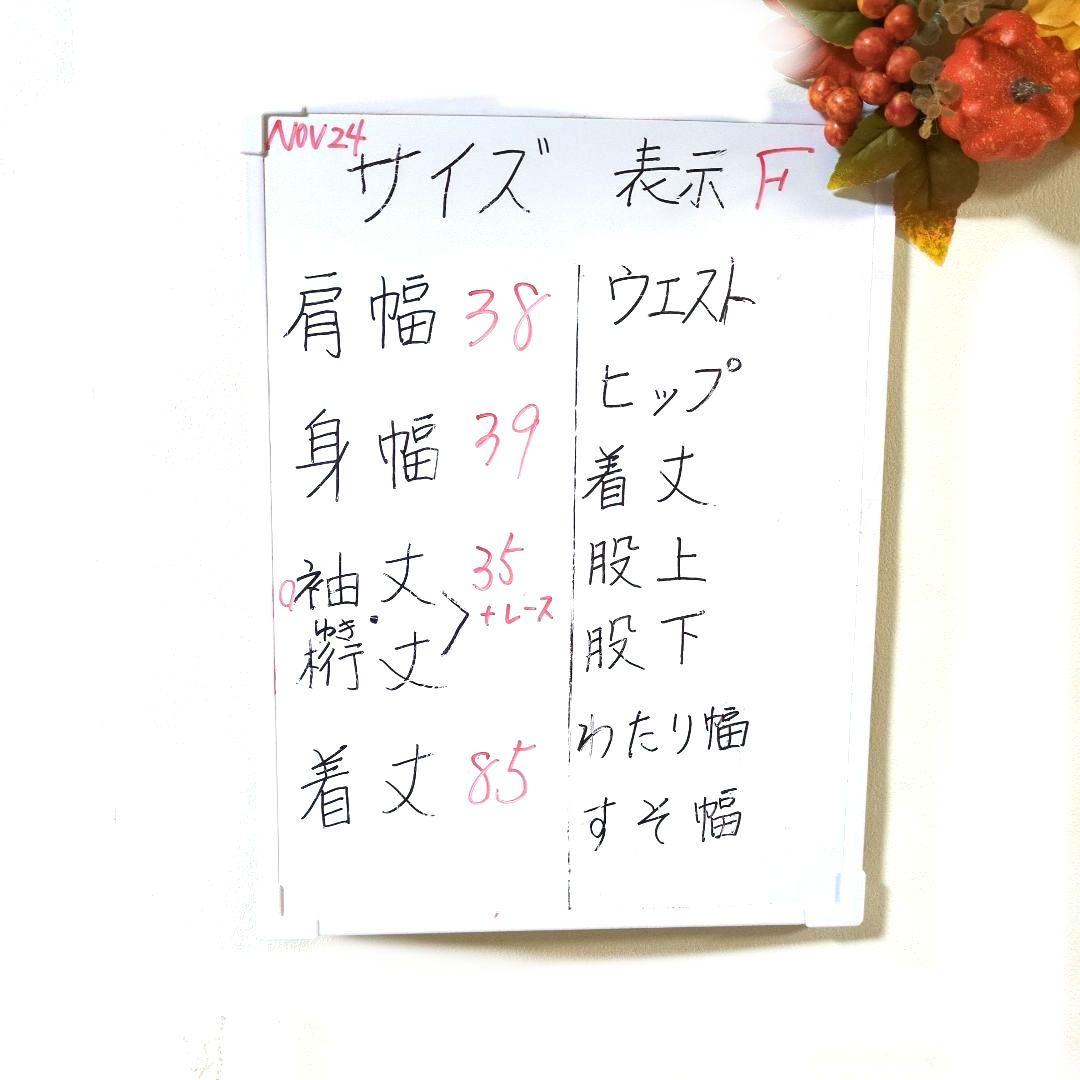 NOV24
サイズ 表示 F
肩幅 38
身幅 39
袖丈 35
+レース
ゆき
裄丈
着丈 85
ウエスト
ヒップ
着丈
股上
股下
わたり幅
すそ幅